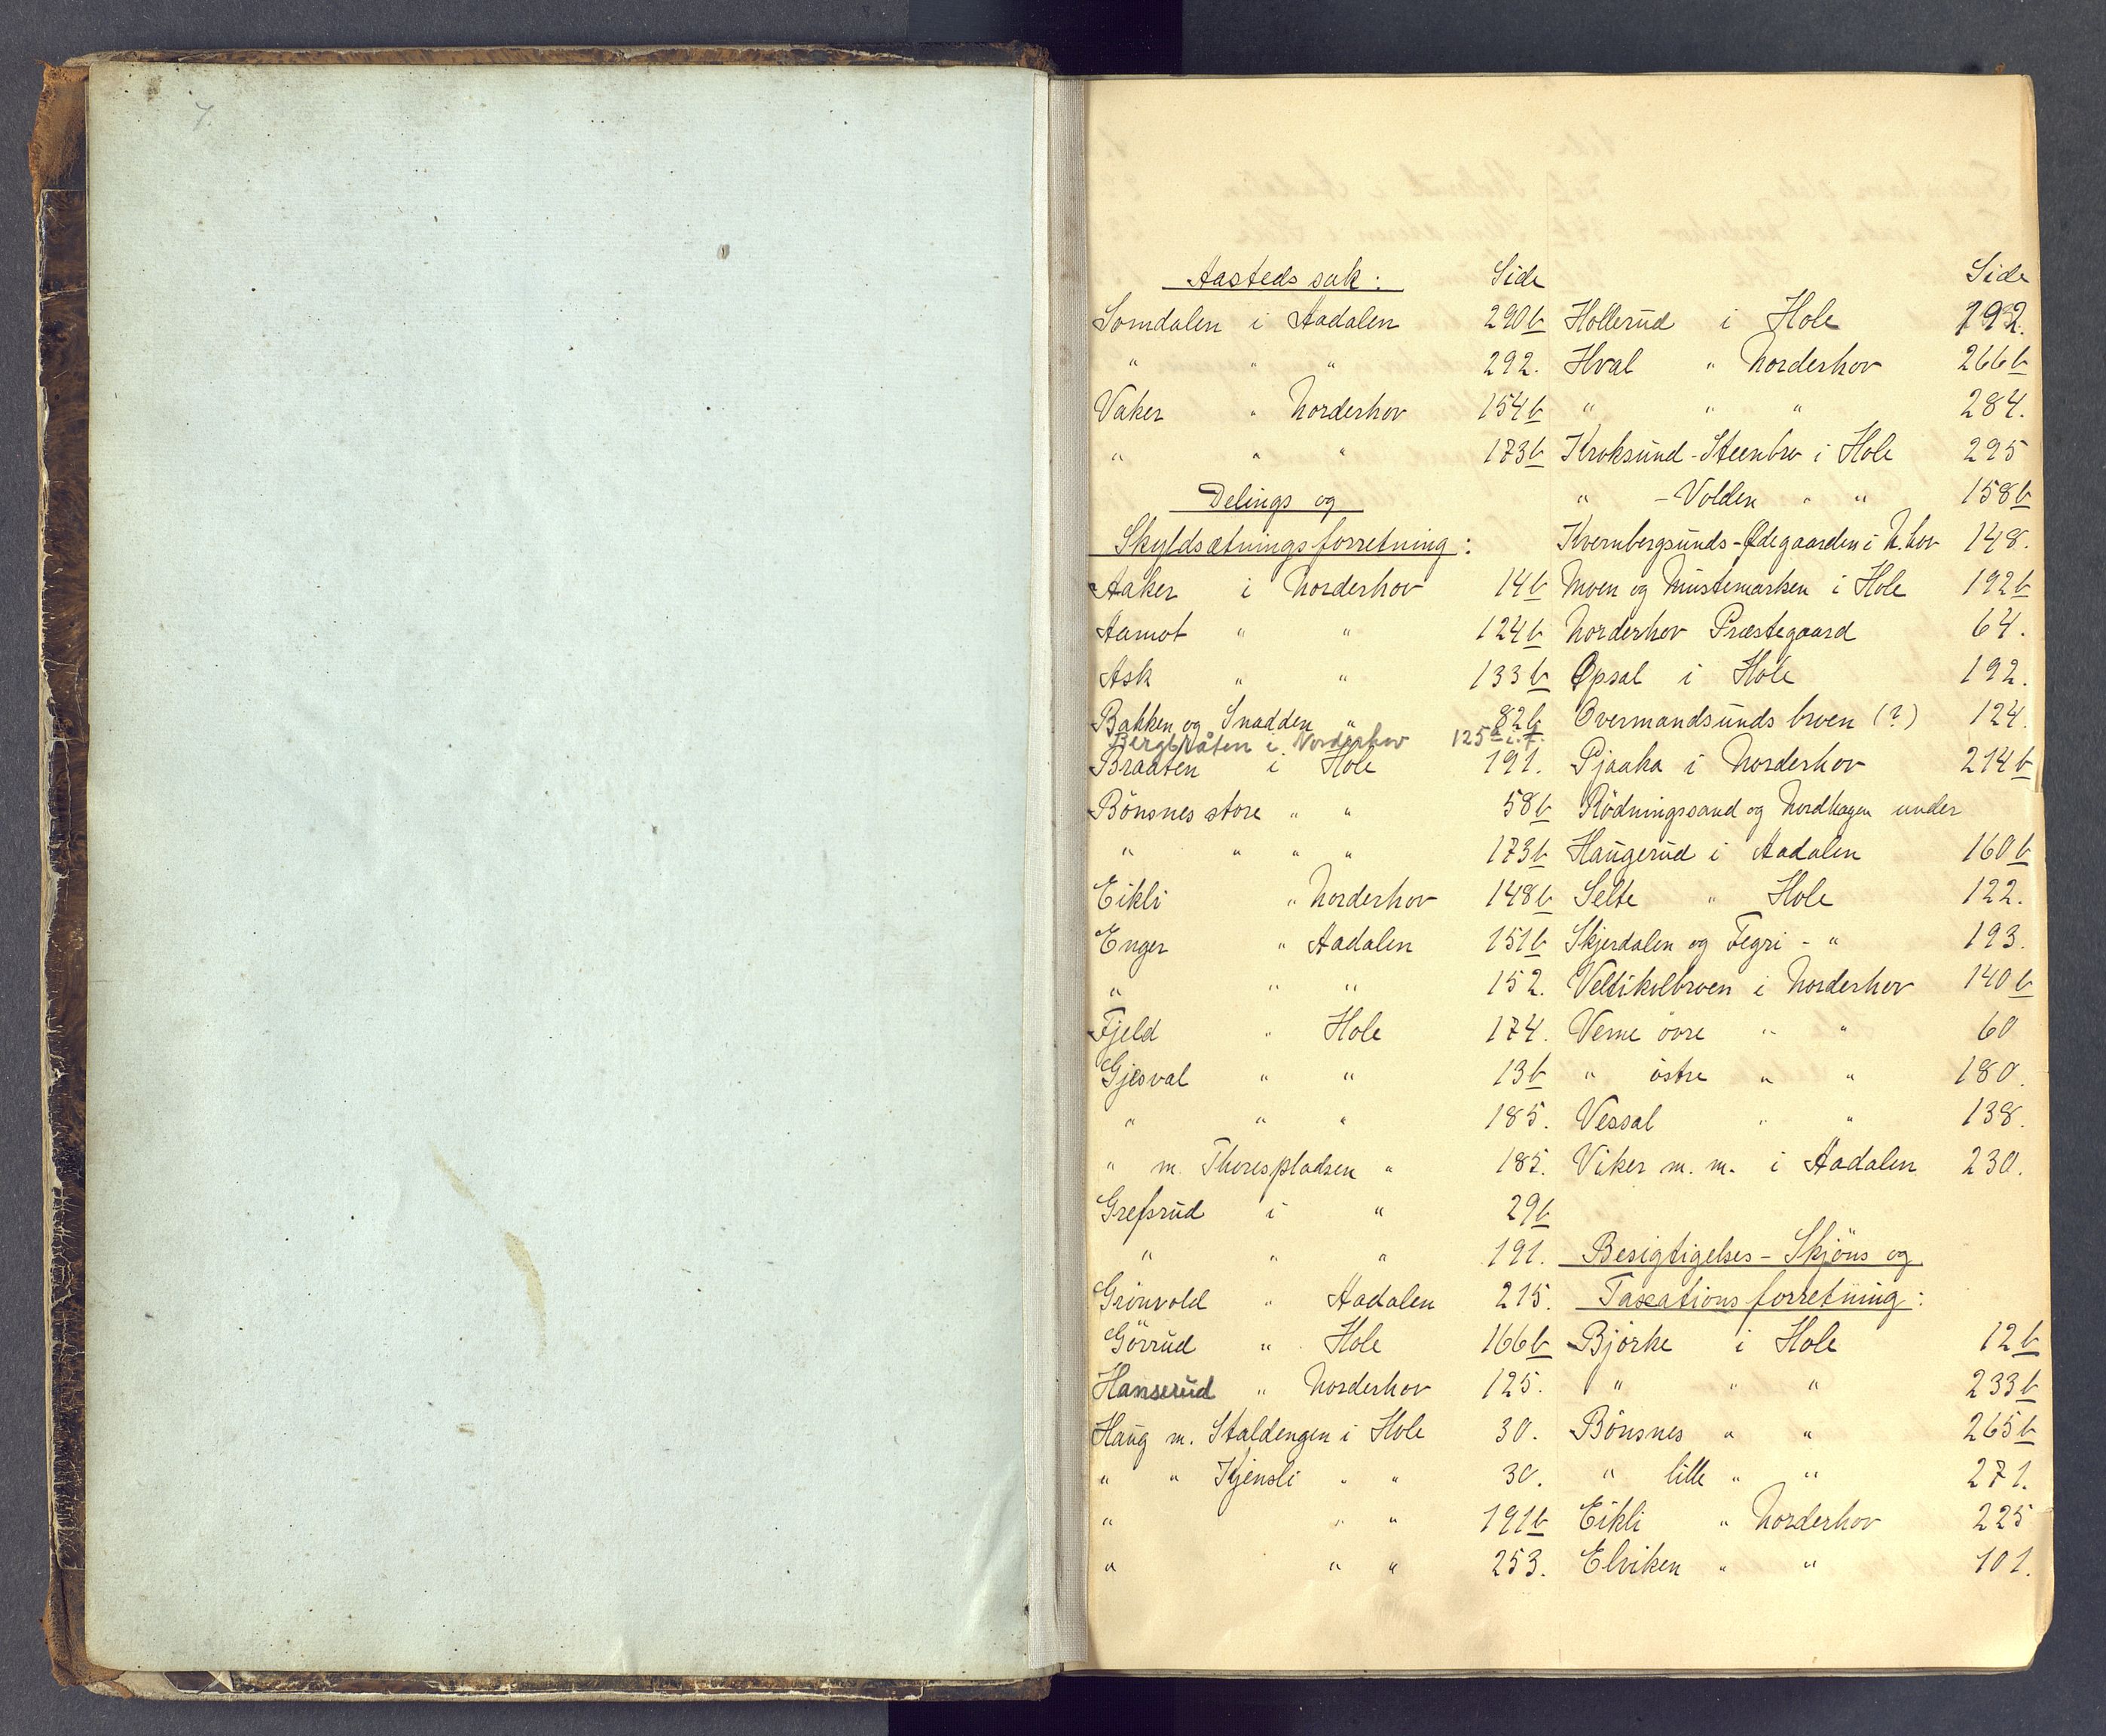 7.
Aasteds sak: Side
Somdalen i Aadalen 290b
" " " 292.
Vaker " Norderhov 154b
" " " 173b
Delings og
Skyldsætningsforretning:
Aaker i Norderhov 14b
Aamot " " 124b
Ask " " 133b
Bakken og Snadden " 82b
Bergbråten i Norderhov 125b i.f.
Braaten i Hole 191.
Bönsnes store " " 58b
" " " " 173b
Eikli " Norderhov 148b
Enger " Aadalen 151b
" " " 152.
Fjeld " Hole 174.
Gjesval " " 13b
" " " 185.
" m. Thorespladsen " 185.
Grefsrud i " 29b
" " " 191.
Grönvold " Aadalen 215.
Görrud " Hole 166b
Hanserud " Norderhov 125.
Haug m. Staldengen i Hole 30.
" " Kjensli " " 30.
" " " 191b
" " " 253.
Side
Hollerud i Hole 192.
Hval " Norderhov 266b
" " " 284.
Kroksund-Steenbro i Hole 295
" -Volden " " 158b
Kvernbergsunds-Ødegaarden i N.hov 148.
Moen og Mustemarken i Hole 192b
Norderhov Præstegaard 64.
Opsal i Hole 192.
Overmandsunds broen (?) 124.
Pjaaka i Norderhov 214b
Rödningssand og Nordhagen under
Haugerud i Aadalen 160b
Selte " Hole 122.
Skjerdalen og Fegri - " 193.
Veltikolbroen i Norderhov 140b
Verne övre " " 60
" östre " " 180.
Vessal " " 138.
Viker m. m. i Aadalen 230.
Besigtigelses- Skjöns og
Taxationsforretning:
Bjorke i Hole 12b
" " " 233b
Bönsnes " " 265b
" lille " " 271.
Eikli " Norderhov 225
Elviken " " 101.